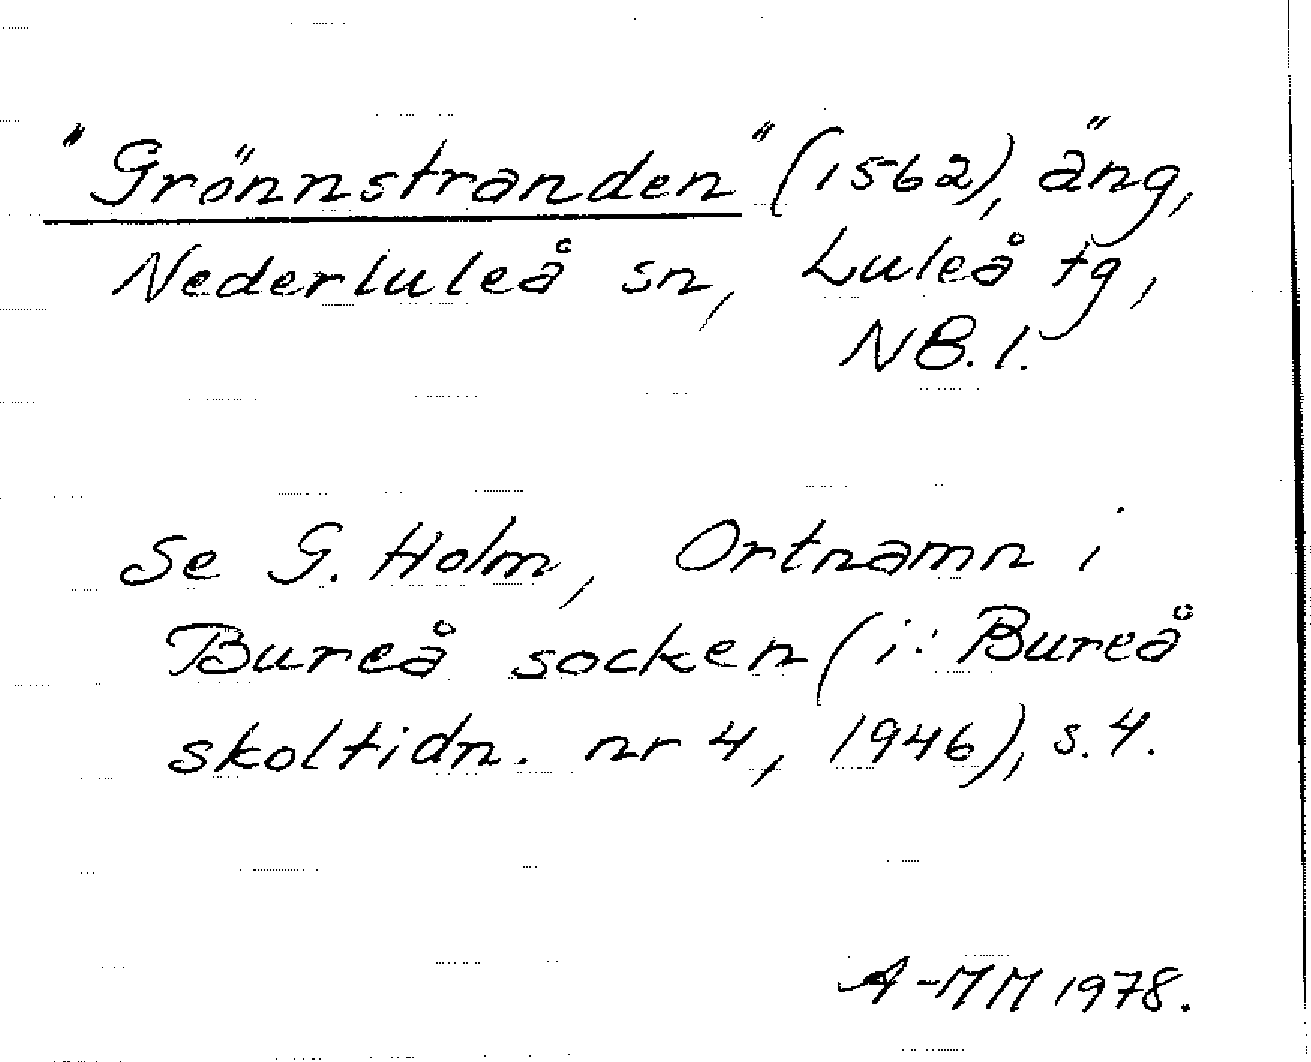 "Grönnstranden" (1562), äng,
Nederluleå sn, Luleå tg,
NB. l.
Se G. Holm, Ortnamn i
Bureå socken (i: Bureå
skoltidn. nr 4, 1946), s. 4.
A-MM 1978.